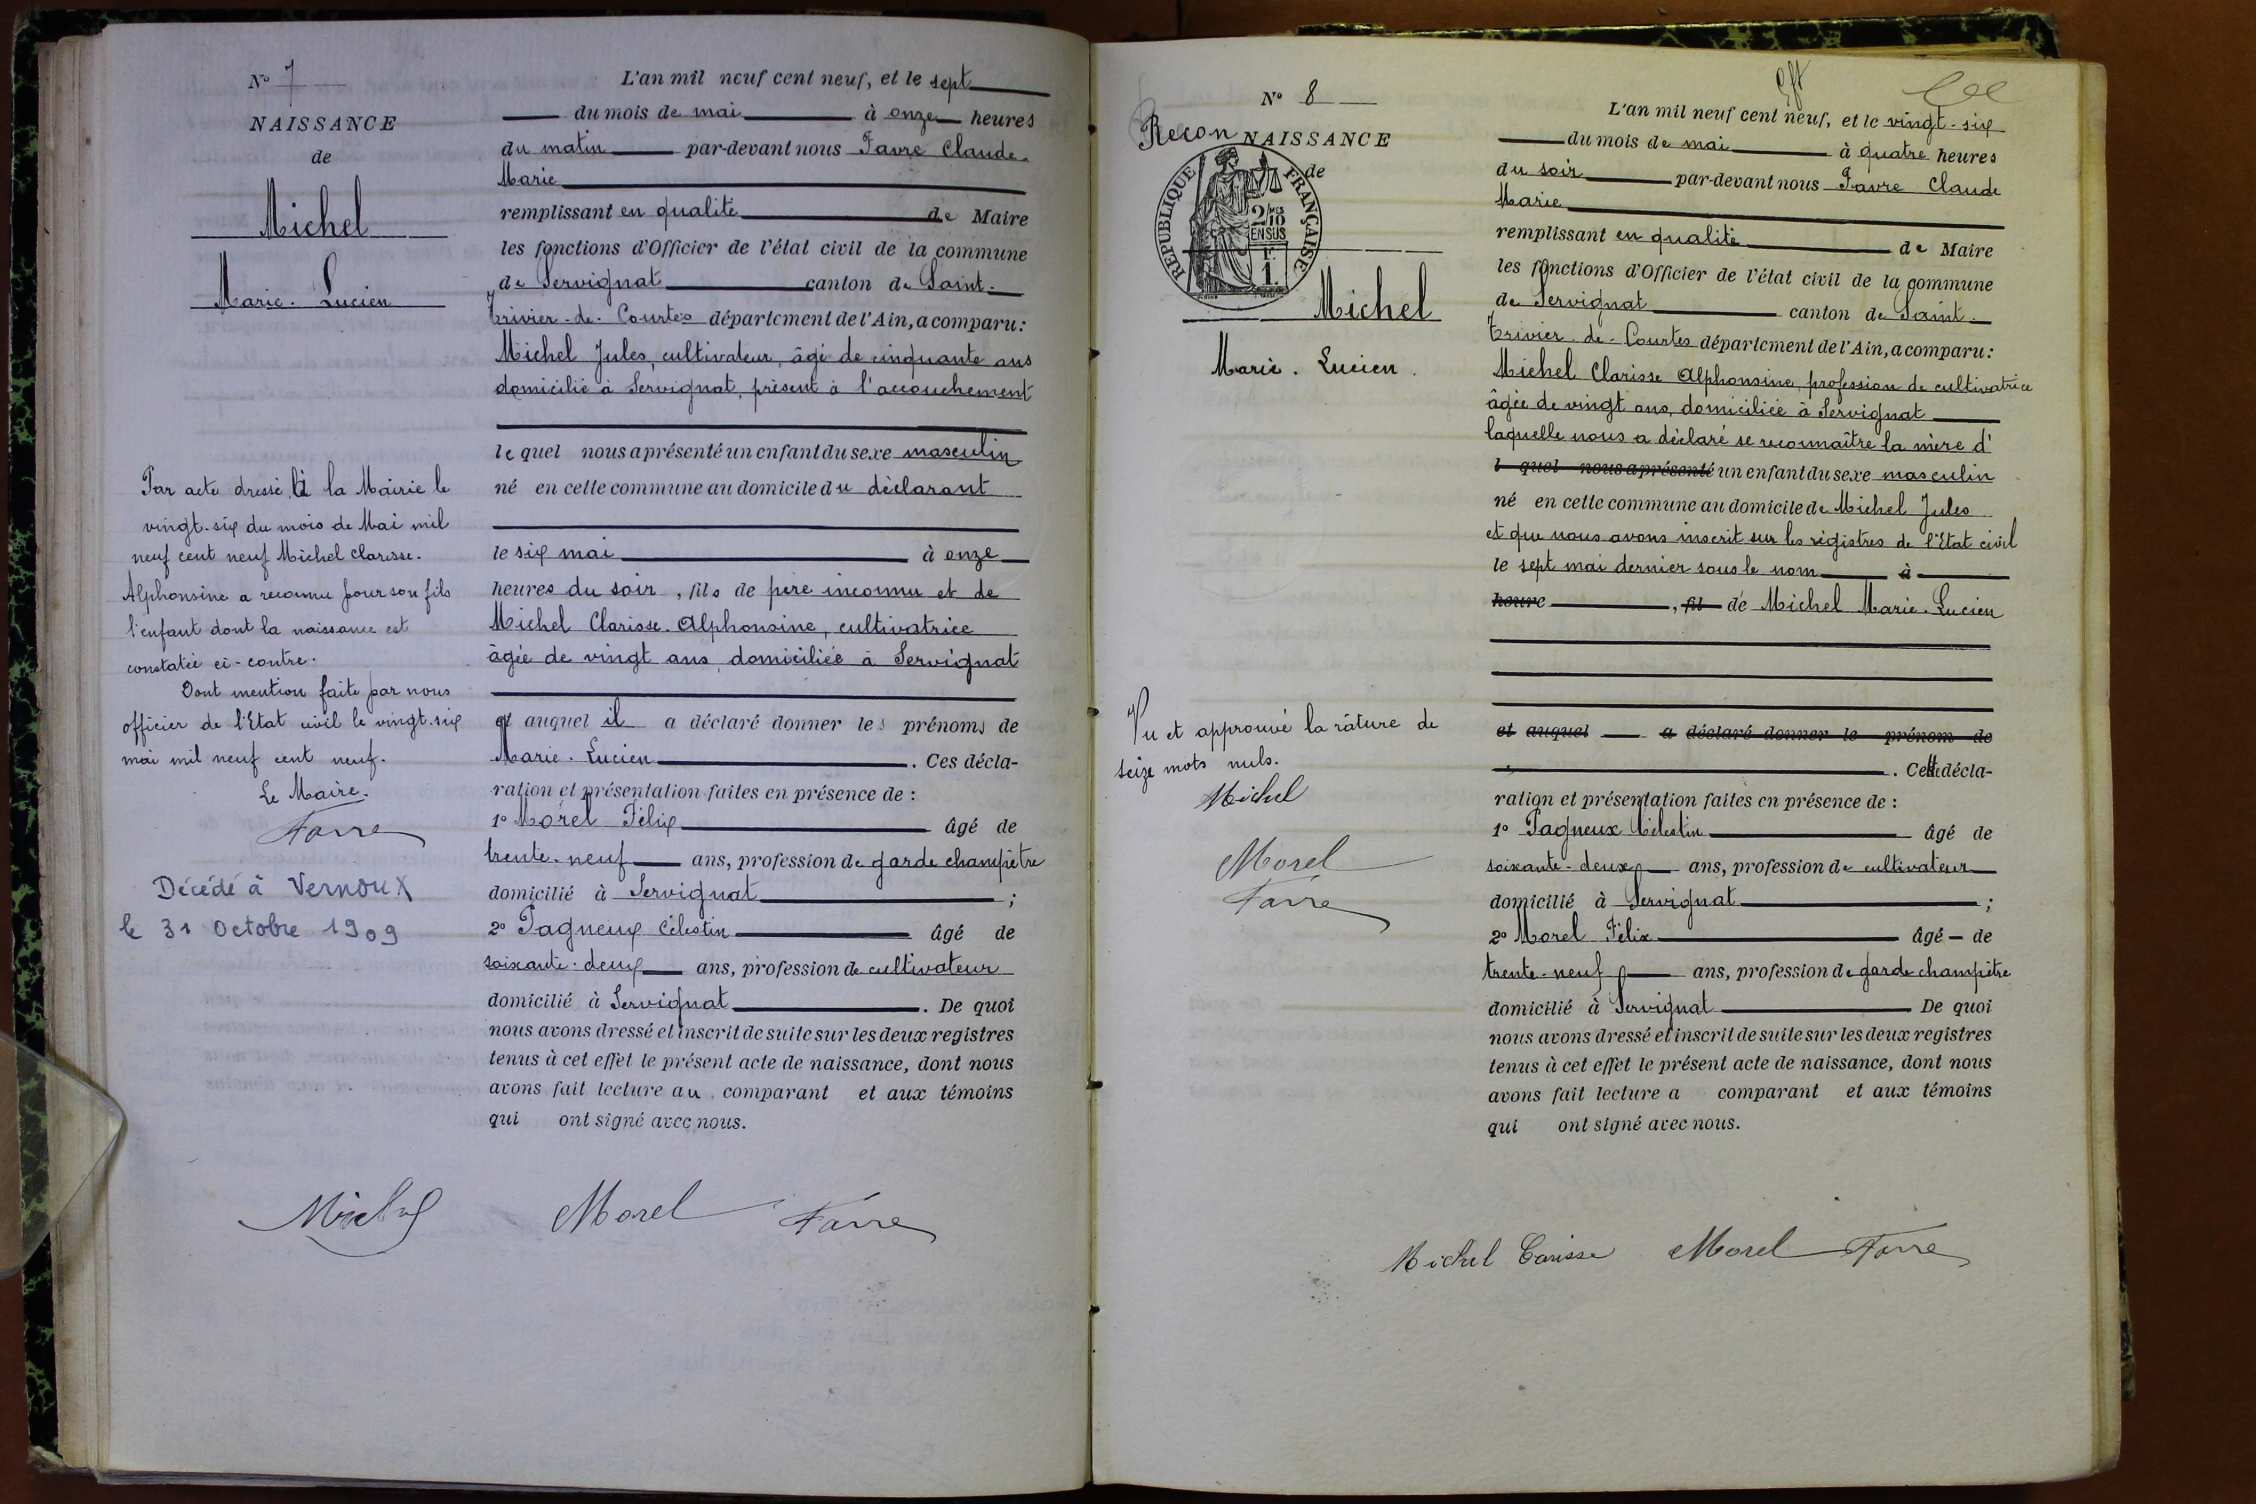 N° 7
NAISSANCE
de
Michel
Marie. Lucien
Par acte dressé à la Mairie le
vingt-six du mois de Mai mil
neuf cent neuf Michel Clarisse.
Alphonsine a reconnu pour son fils
l'enfant dont la naissance est
constatée ci-contre.
Dont mention faite par nous
officier de l'Etat civil le vingt-six
mai mil neuf cent neuf.
Le Maire.
Favre
Décédé à Vernoux
le 31 Octobre 1909
L'an mil neuf cent neuf, et le sept
du mois de mai à onze heures
du matin par-devant nous Favre Claude.
Marie
remplissant en qualité de Maire
les fonctions d'Officier de l'état civil de la commune
de Servignat canton de Saint-
Trivier-de-Courtes département de l'Ain, a comparu:
Michel Jules, cultivateur, âgé de cinquante ans
domicilié à Servignat, présent à l'accouchement
lequel nous a présenté un enfant du sexe masculin
né en cette commune au domicile du déclarant
le six mai à onze
heures du soir, fils de père inconnu et de
Michel Clarisse-Alphonsine, cultivatrice
âgée de vingt ans, domiciliée à Servignat
et auquel il a déclaré donner les prénoms de
Marie. Lucien. Ces décla-
ration et présentation faites en présence de :
1° Morel Félix âgé de
trente-neuf ans, profession de garde champêtre
domicilié à Servignat ;
2° Pagneux Célestin âgé de
soixante-deux ans, profession de cultivateur
domicilié à Servignat. De quoi
nous avons dressé et inscrit de suite sur les deux registres
tenus à cet effet le présent acte de naissance, dont nous
avons fait lecture au comparant et aux témoins
qui ont signé avec nous.
Michel Morel Favre
N° 8
Recon NAISSANCE
de
REPUBLIQUE FRANÇAISE
2/10 MES
EN SUS
1F.
Michel
Marie. Lucien.
Vu et approuvé la râture de
seize mots nuls.
Michel
Morel
Favre
L'an mil neuf cent neuf, et le vingt-six
du mois de mai à quatre heures
du soir par-devant nous Favre Claude
Marie
remplissant en qualité de Maire
les fonctions d'Officier de l'état civil de la commune
de Servignat canton de Saint-
Trivier-de-Courtes département de l'Ain, a comparu:
Michel Clarisse Alphonsine, profession de cultivatrice
âgée de vingt ans, domiciliée à Servignat
laquelle nous a déclaré se reconnaître la mère d'
l quel nous a présenté un enfant du sexe masculin
né en cette commune au domicile de Michel Jules
et que nous avons inscrit sur les régistres de l'Etat civil
le sept mai dernier sous le nom à
heure, fil de Michel Marie-Lucien
et auquel a déclaré donner le prénom de
. Cette décla-
ration et présentation faites en présence de :
1° Pagneux Célestin âgé de
soixante-deux ans, profession de cultivateur
domicilié à Servignat ;
2° Morel Félix âgé de
trente-neuf ans, profession de garde champêtre
domicilié à Servignat De quoi
nous avons dressé et inscrit de suite sur les deux registres
tenus à cet effet le présent acte de naissance, dont nous
avons fait lecture a comparant et aux témoins
qui ont signé avec nous.
Michel Clarisse Morel Favre